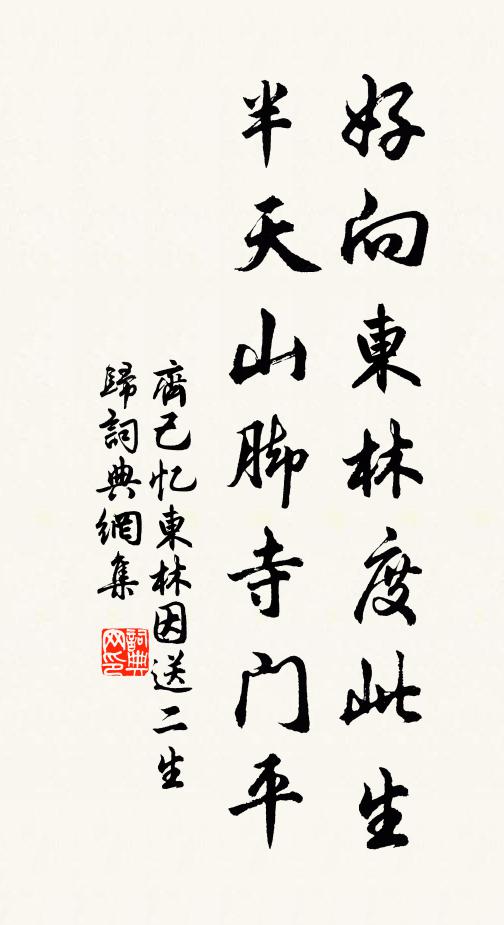 好向東林度此生
半天山脚寺門平
齊己忆東林因送二生
歸詞典網集
詞典
网印